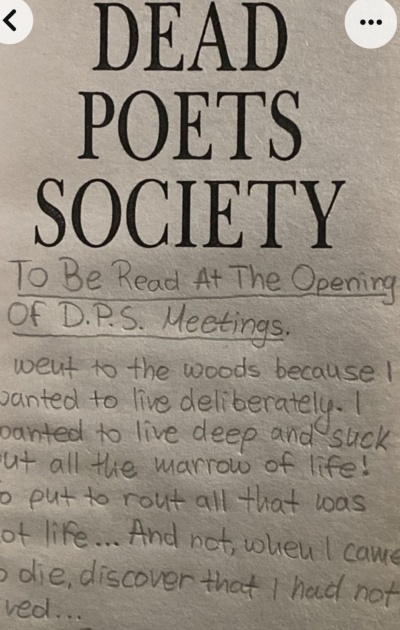 DEAD
POETS
SOCIETY
To Be Read At The Opening
Of D.P.S. Meetings.
went to the woods because I
wanted to live deliberately. I
wanted to live deep and suck
out all the marrow of life!
to put to rout all that was
not life... And not, when I came
to die, discover that I had not
ved...